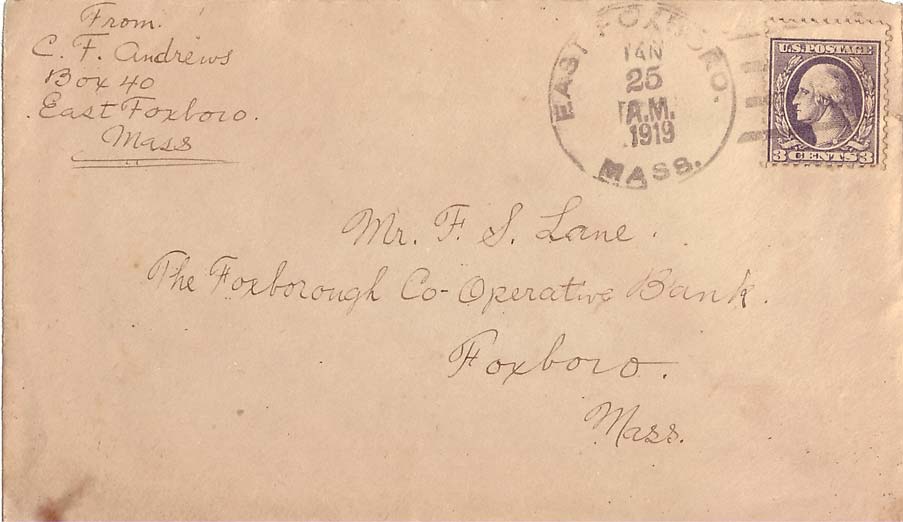 From.
C. F. Andrews
Box 40
East Foxboro.
Mass
EAST FOXBORO.
JAN
25
A.M.
1919
MASS.
U.S. POSTAGE
3 CENTS 3
Mr. F. S. Lane.
The Foxborough Co-Operative Bank.
Foxboro.
Mass.